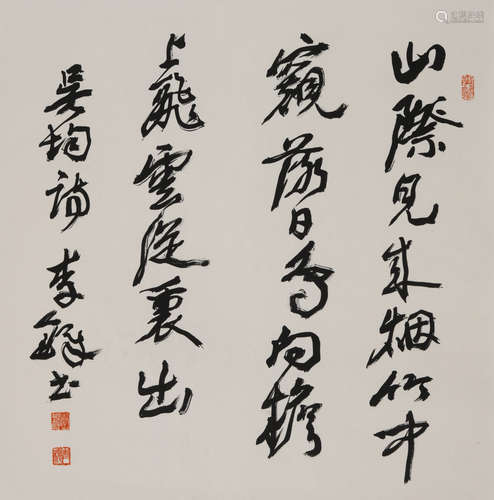 山際見来烟竹中
窺落日鳥向檐
上飛雲從裏出
吴均詩 李鐸書